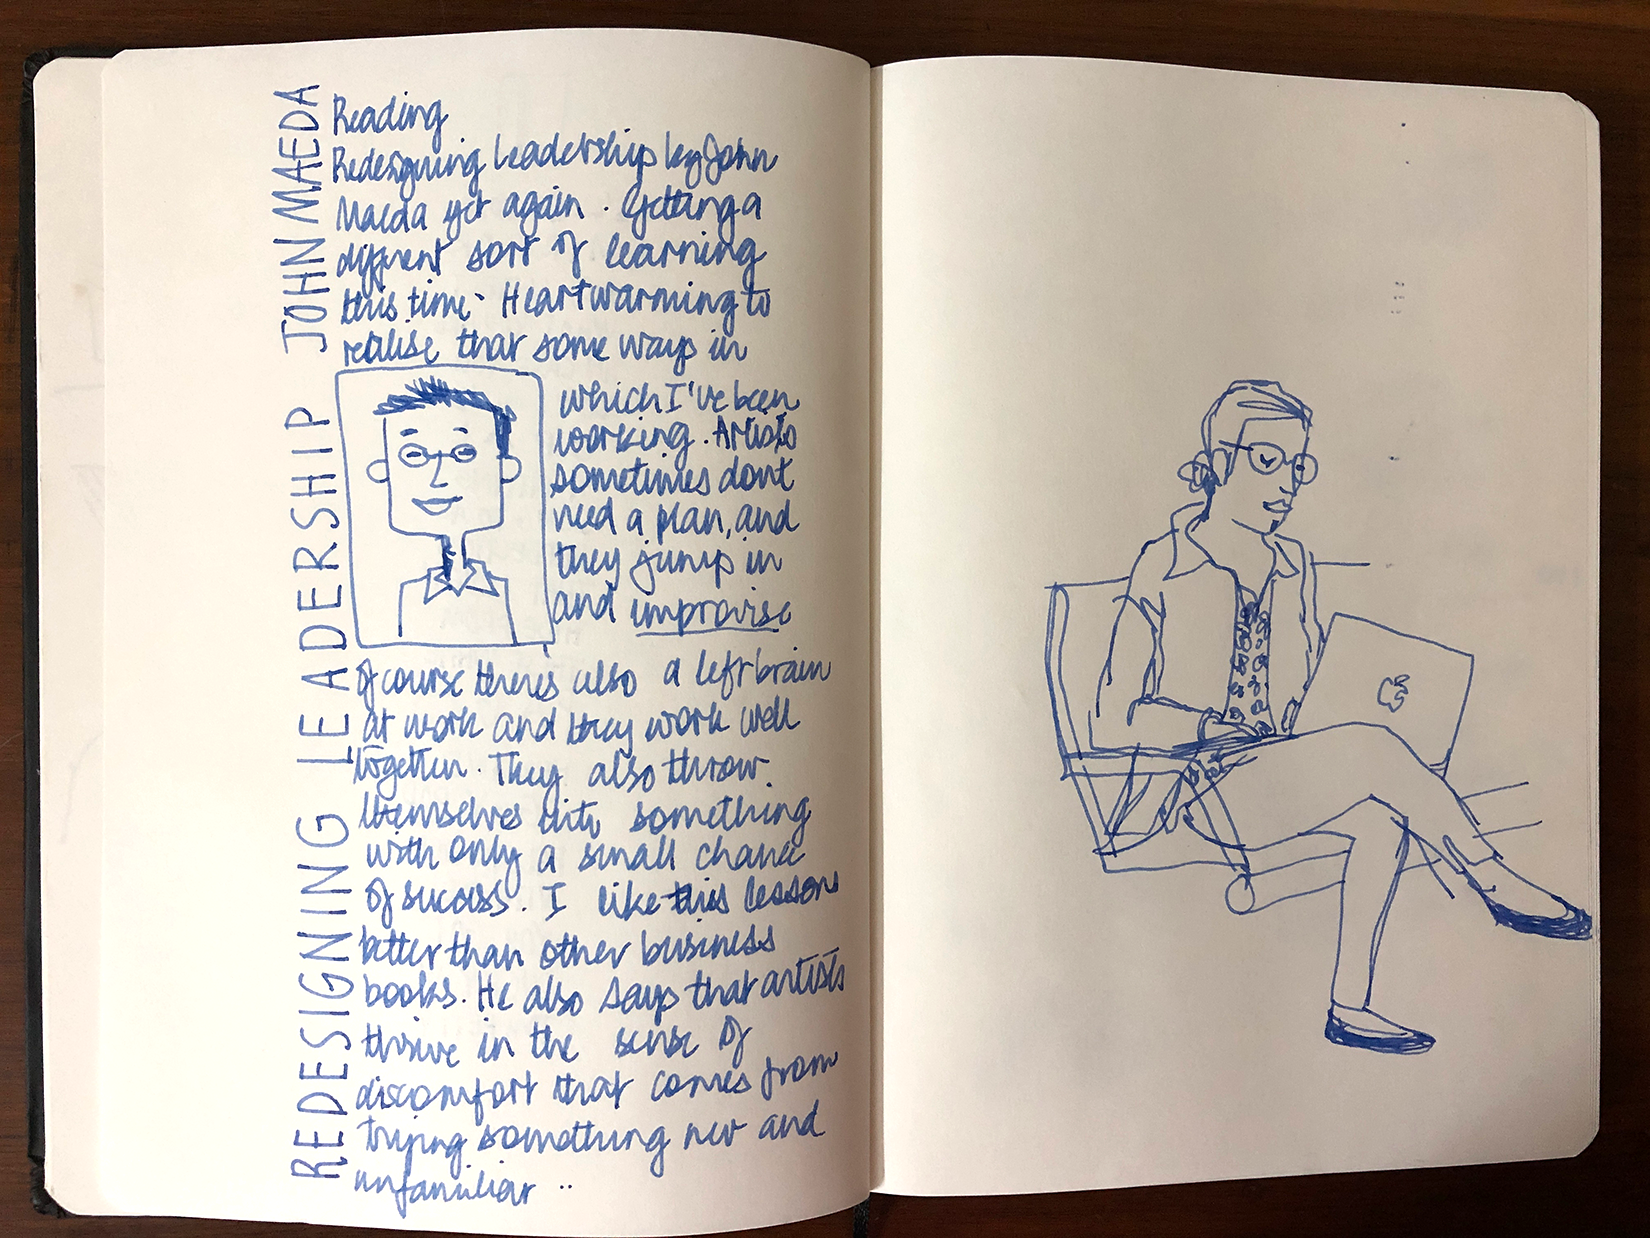 REDESIGNING LEADERSHIP JOHN MAEDA
Reading
Redesigning Leadership by John
Maeda yet again. Getting a
different sort of learning
this time. Heartwarming to
realise that some ways in
which I've been
working. Artists
sometimes dont
need a plan, and
they jump in
and improvise
Of course there's also a left brain
at work and they work well
together. They also throw
themselves into something
with only a small chance
of success. I like this lesson
better than other business
books. He also says that artists
thrive in the sense of
discomfort that comes from
trying something new and
unfamiliar ..